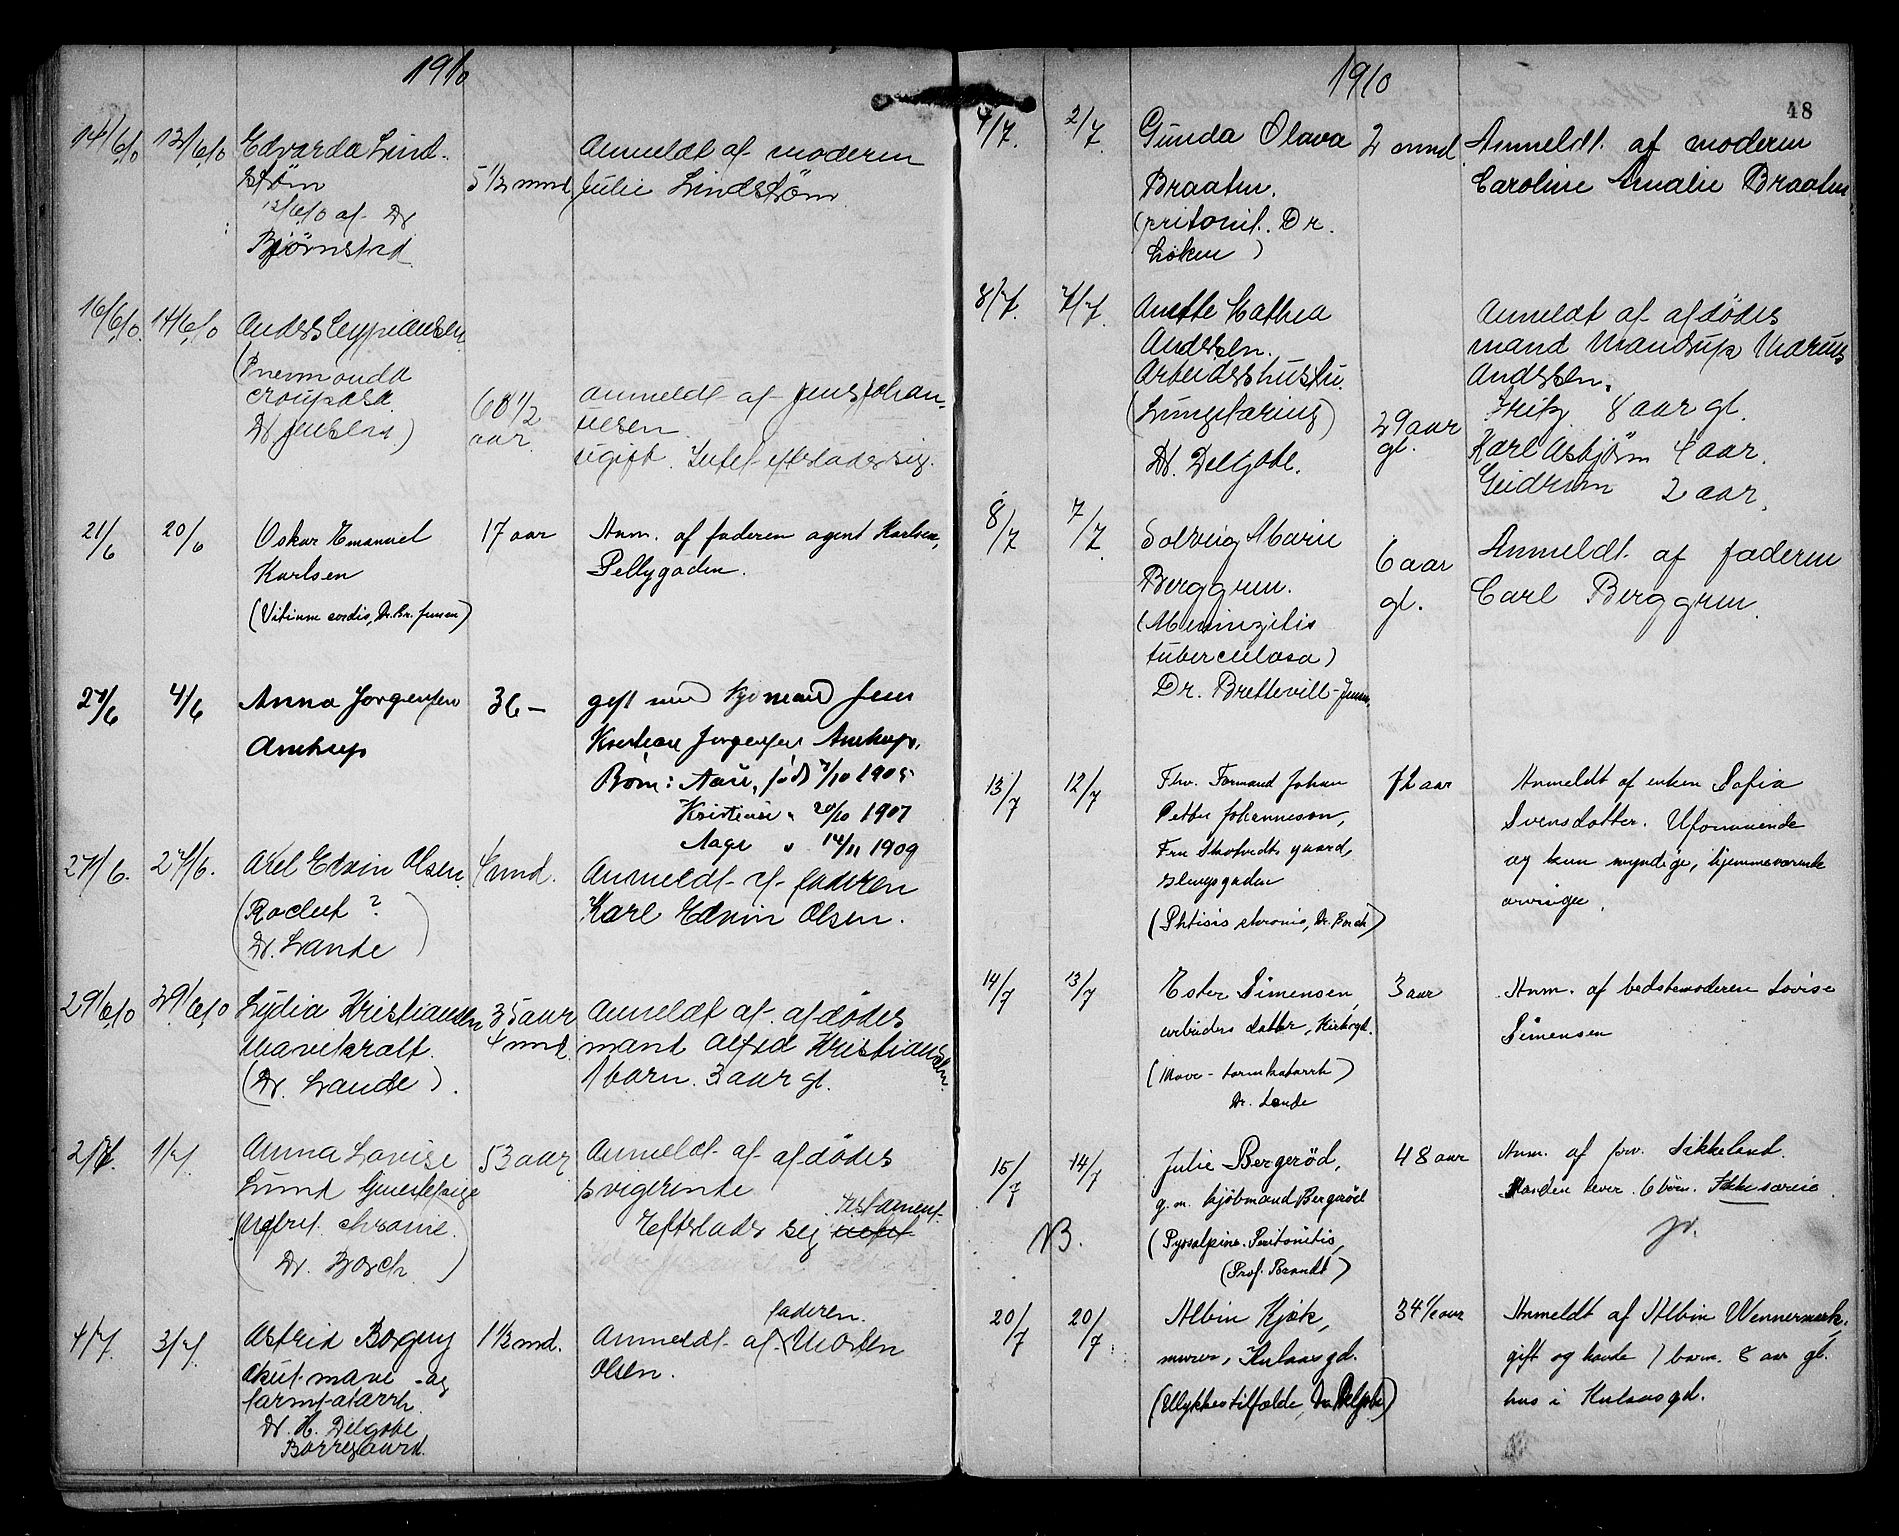 1910
14/6 10 12/6 10 Edvarda Lind-
strøm
12/6 10 af Dr
Bjørnstad
5 1/2 mnd
Anmeldt af moderen
Julie Lindstrøm.
16/6 10. 14/6 10 Anders Cypriansen
(Pneumonda
croupøsa.
Dr Jensen)
68 1/2
aar
anmeldt af Jens Johan-
nesen
ugift. Intet efterlader sig.
21/6 20/6 Oskar Emanuel
Karlsen
(Vitium cordis, Dr. Br. Jensen)
17 aar
Anm. af faderen agent Karlsen,
Pellygaden.
27/6 4/6 Anna Jørgensen
Amtrup
36 —
gift med Kjømand Jens
Kristian Jørgensen Amtrup.
Børn: Aase, født 7/10 1905
Kristian " 20/10 1907
Aage " 14/11 1909
27/6. 27/6. Axel Edvin Olsen.
(Raclut ?
Dr. Lande)
4 mnd.
Anmeldt af faderen
Karl Edvin Olsen.
29/6 10 29/6 10 Lydia Kristiansen
Mavekræft.
(Dr. Lande).
35 aar
4 mnd.
Anmeldt af afdødes
mand Alfred Kristiansen
1 barn. 3 aar gl.
2/7. 1/7 Anna Lovise
Lund
(Nefrit. chronic.
Dr. Borch)
53 aar
Anmeldt af afdødes
svigerinde
testament.
Efterlader sig intet
4/7. 3/7. Astrid Borgny
Akut mave - og
tarmkatarrh.
Dr. H. Delgobe
Borregaard.
1 1/2 md.
faderen.
Anmeldt af Morten
Olsen.
1910
48
4/7. 2/7. Gunda Olava
Braaten.
(pritonit. Dr.
Løken)
2 mnd.
Anmeldt. af moderen
Caroline Amalie Braaten.
8/7. 7/7. Anette Mathea
Andersen.
Arbeidshustru.
(Lungetæring)
Dr. Delgobe.
29 aar
gl.
Anmeldt af afdødes
mand Mandrup Marius
Andersen.
Fritz 8 aar gl.
Karl Asbjørn 4 aar.
Gudrun 2 aar.
8/7 7/7. Solveig Marie
Berggren.
(Meningitis
tuberculosa)
Dr. Brettevill-Jensen,
6 aar
gl.
Anmeldt. af faderen
Carl Berggren.
13/7 12/7 Fhv. Formand Johan
Petter Johannesson,
Fru Skofvedts gaard,
Slengsgaden
(Phtisis chronic, Dr. Borch)
72 aar
Anmeldt af enken Sofia
Svensdotter. Uformuende
og kun myndige, hjemmeværende
arvinger.
14/7 13/7 Ester Simensen,
arbeiders datter, Kirkegd.
(Mave-tarmkatarrh)
Dr. Lande
3 aar
Anm. af bedstemoderen Lovise
Simensen
15/7 14/7 Julie Bergerød,
g.m. kjøbmand Bergerød
NB.
(Pyosalpinx. Peritonitis,
(Prof. Brandt)
48 aar
Anm. af frv. Sikkeland.
Manden lever. 6 børn. Ikke særeie
20/7 20/7. Albin Kjøk,
murer, Kulaasgd.
(Ulykkestilfælde, Dr. Delgobe)
34 1/2 aar
Anmeldt af Albin Wennermark,
gift og havde 1 barn. 8 aar gl.
hus i Kulaasgd.